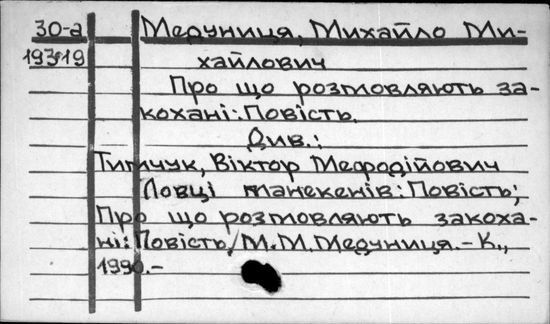 30-а Медуниця, Михайло Ми-
193519 хайлович
Про що розмовляють за-
кохані: Повість.
Див.:
Тимчук, Віктор Мефодійович
Ловці манекенів: Повість;
Про що розмовляють закоха-
ні: Повість/М.М.Медуниця.-К.,
1990.-